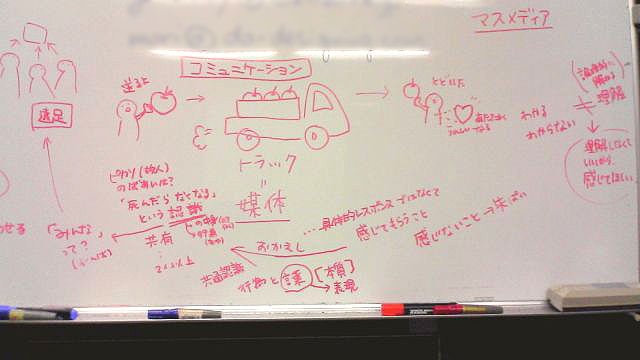 マスメディア
コミュニケーション
送るよ
とどいた
遠足
理解
わかる
わからない
理解しなくて
いいから
感じてほしい
トラック
媒体
ピカソ(故人)
のばあいは?
「死んだらなくなる」
という認識
共有
2人以上
「みんな」
って?
おかえし
共通認識
…具体的レスポンスではなくて
感じてもらうこと
感じないこと→失ぱい
行動と言葉
表現